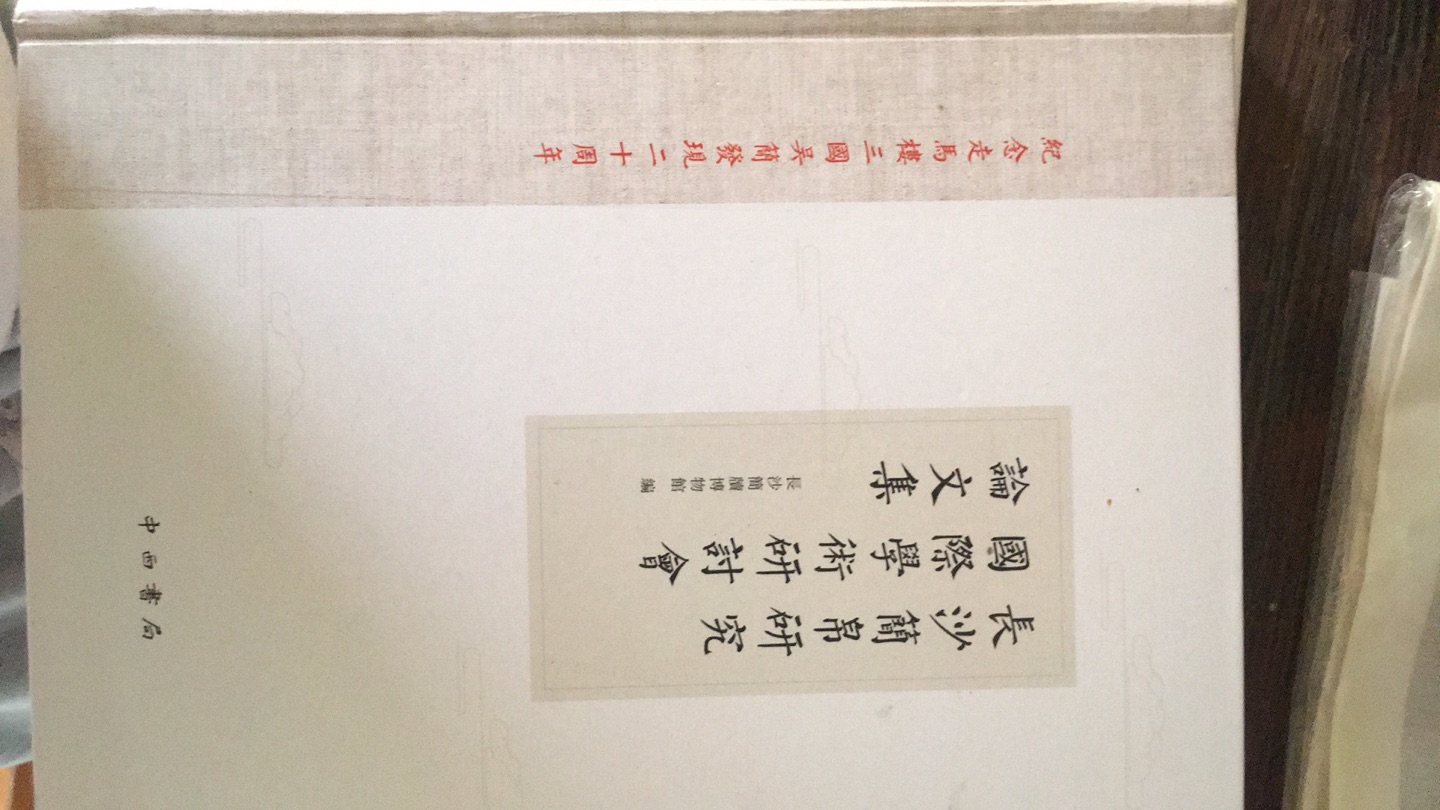 長沙簡帛研究
國際學術研討會
論文集
長沙簡牘博物館 編
紀念走馬樓三國吳簡發現二十周年
中西書局